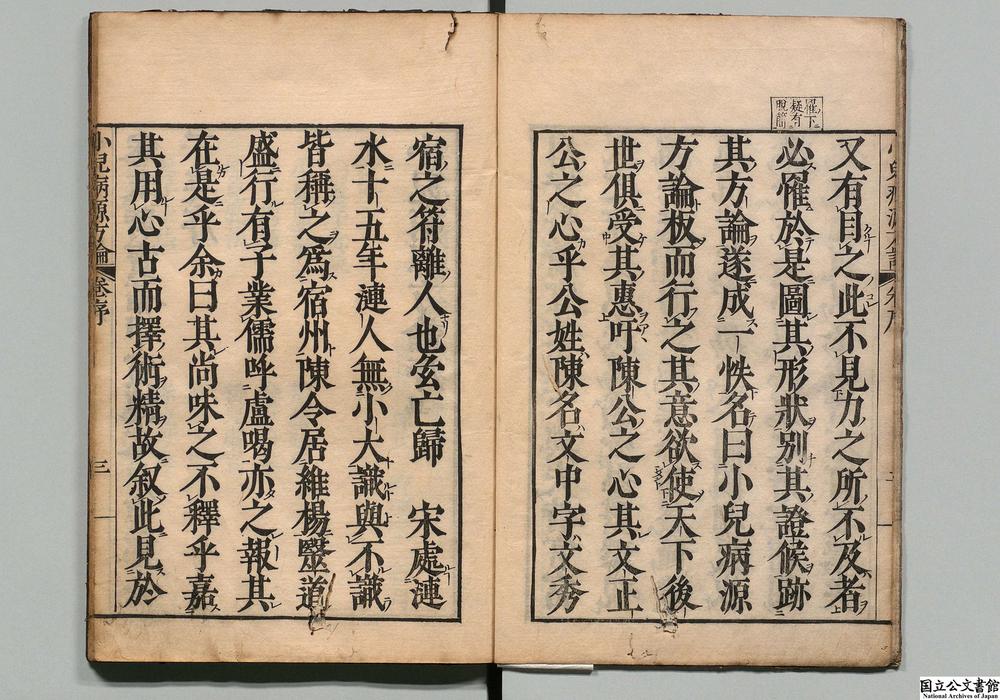 罹下
疑有
脱簡
又有目之此不見力之所不及者
必罹於是圖其形狀別其證候跡
其方論遂成一帙名曰小兒病源
方論板而行之其意欲使天下後
世俱受其惠吁陳公之心其文正
公之心乎公姓陳名文中字文秀
宿之符離人也玄亡歸　宋處漣
水十五年漣人無小大識與不識
皆稱之爲宿州陳令居維楊毉道
盛行有子業儒呼盧喝亦之報其
在是乎余曰其尚味之不釋乎嘉
其用心古而擇術精故叙此見於
小兒病源方論　卷序
三
国立公文書館
National Archives of Japan